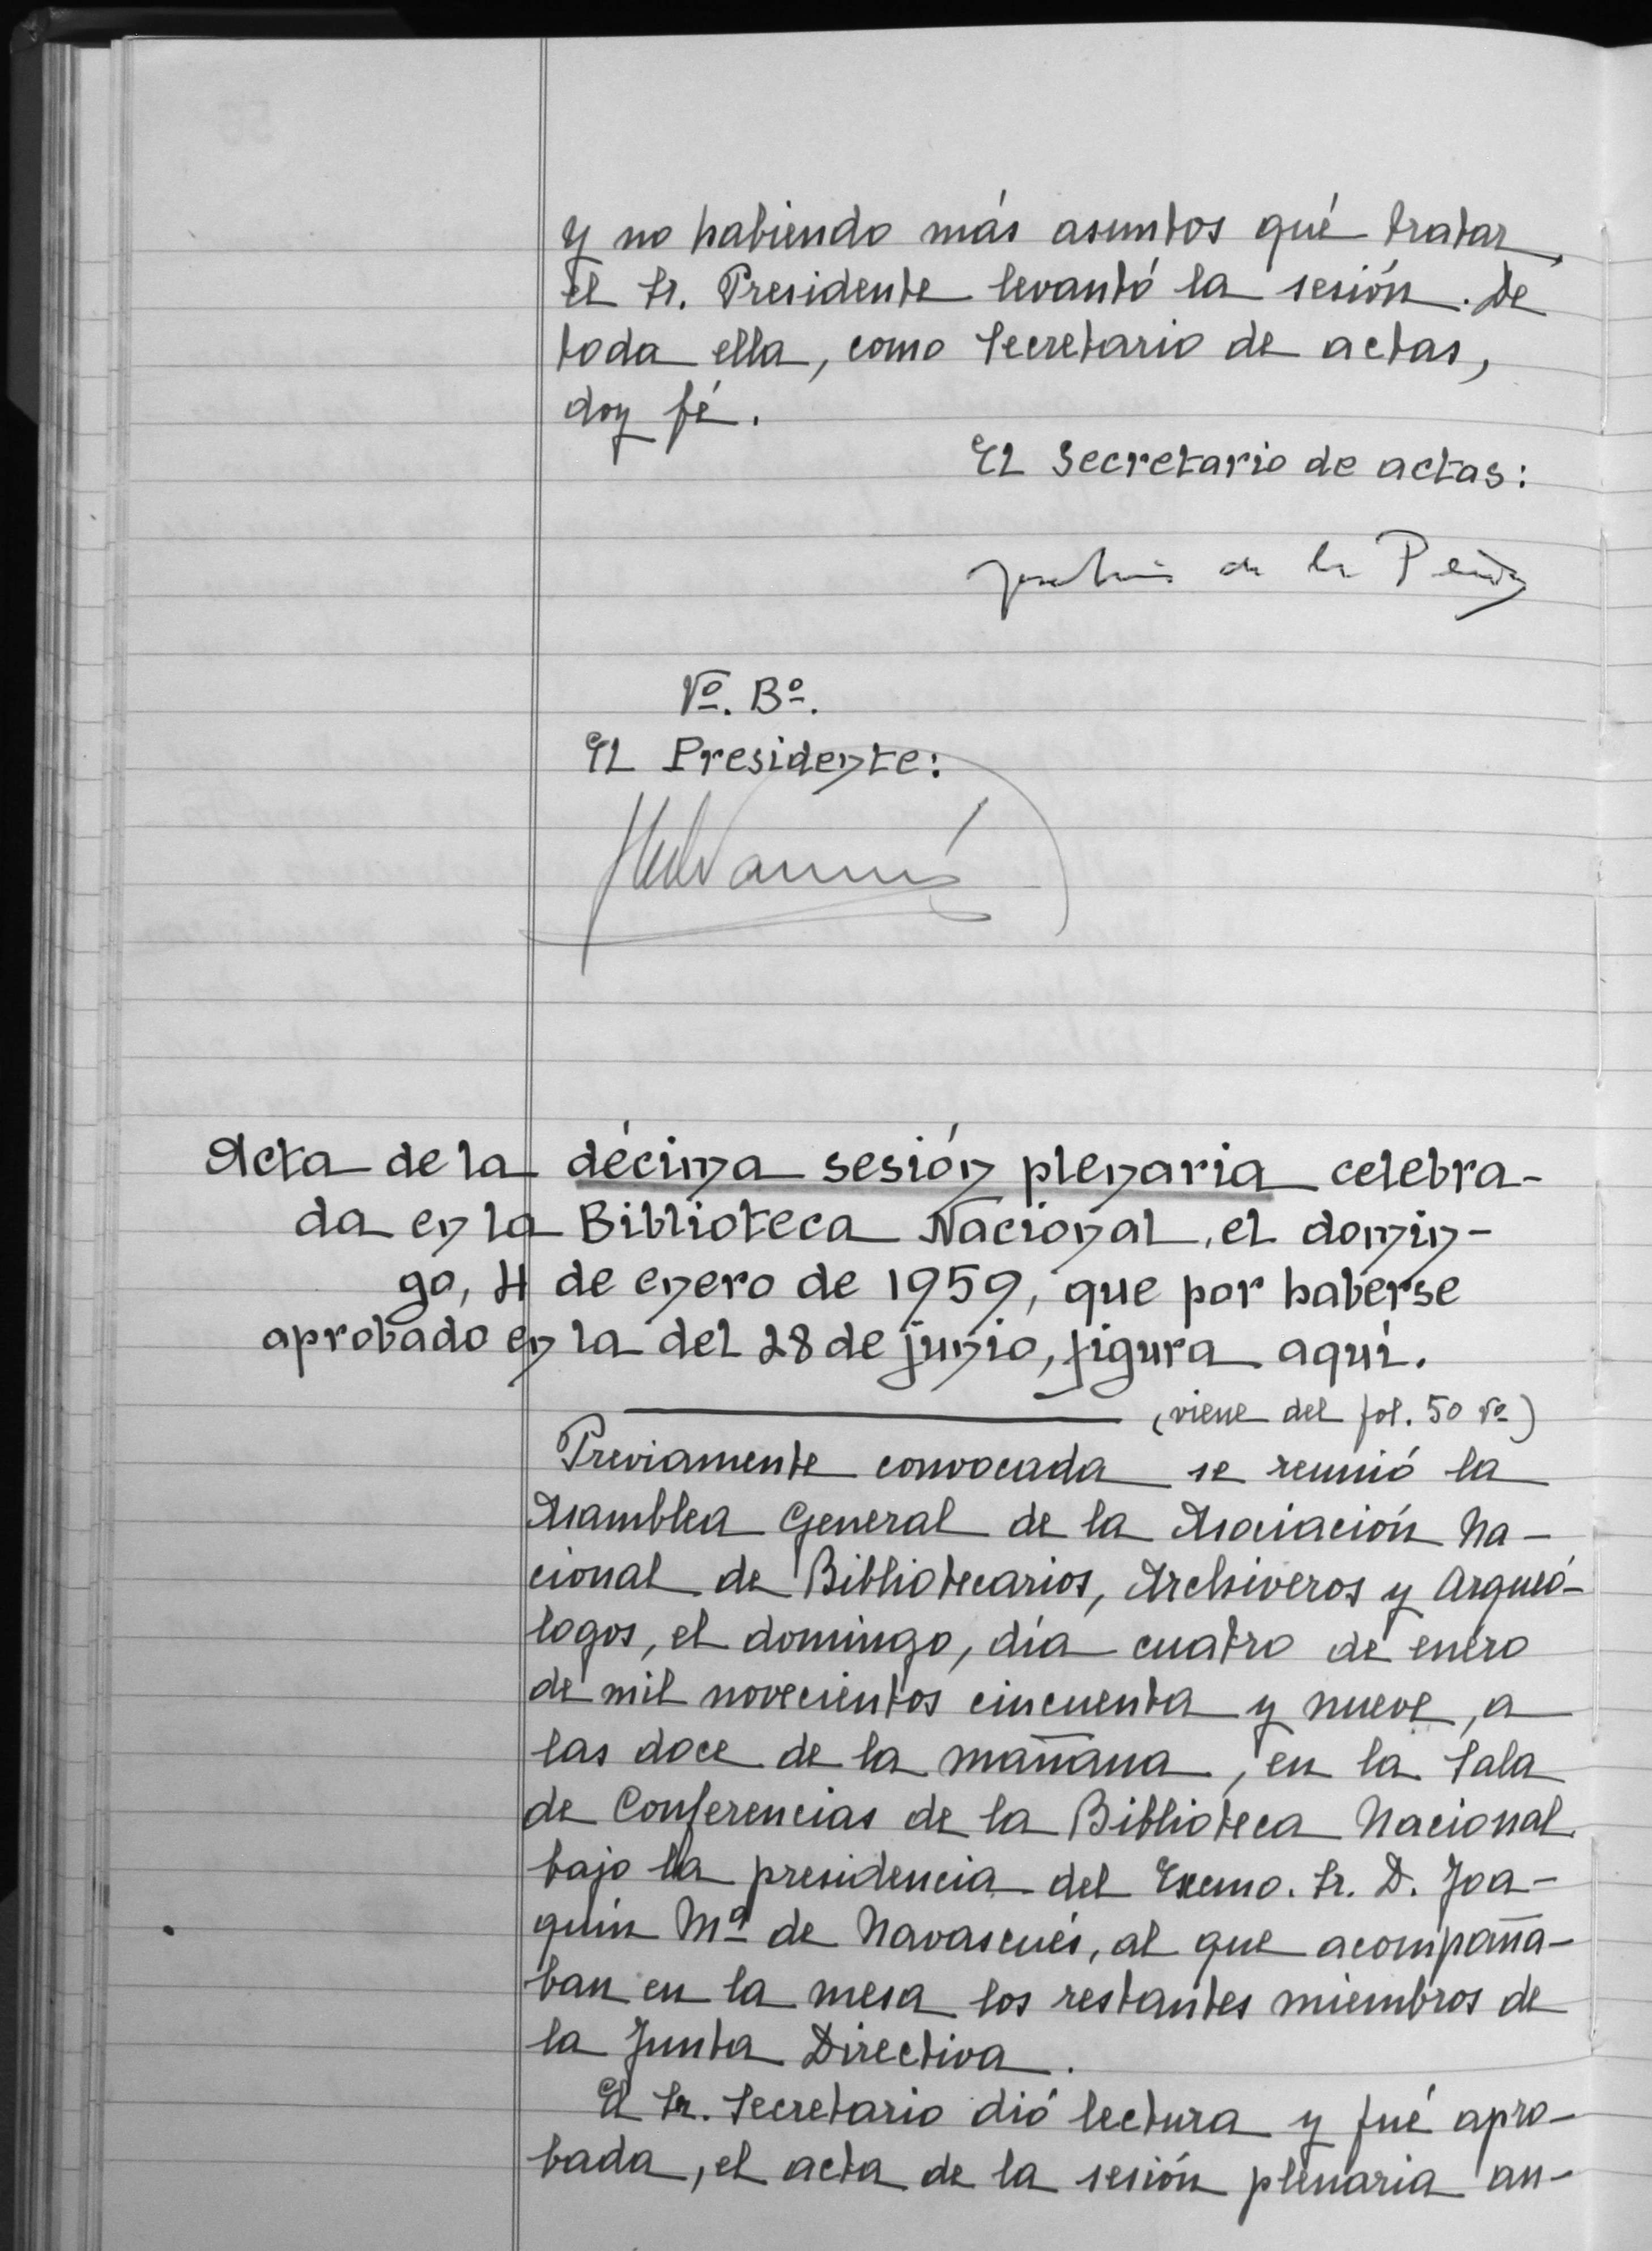 y no habiendo más asuntos qué tratar,
el Sr. Presidente levantó la sesión. De
toda ella, como Secretario de actas,
doy fé.
El Secretario de actas:
José Luis de la Peña
Vº. Bº.
El Presidente:
Acta de la décima sesión plenaria celebra-
da en la Biblioteca Nacional, el domin-
go, 4 de enero de 1959, que por haberse
aprobado en la del 28 de junio, figura aquí.
(viene del fol. 50 vº)
Previamente convocada se reunió la
Asamblea General de la Asociación Na-
cional de Bibliotecarios, Archiveros y Arqueó-
logos, el domingo, día cuatro de enero
de mil novecientos cincuenta y nueve, a
las doce de la mañana, en la Sala
de Conferencias de la Biblioteca Nacional
bajo la presidencia del Excmo. Sr. D. Joa-
quín Mª de Navascués, al que acompaña-
ban en la mesa los restantes miembros de
la Junta Directiva.
El Sr. Secretario dió lectura y fué apro-
bada, el acta de la sesión plenaria an-